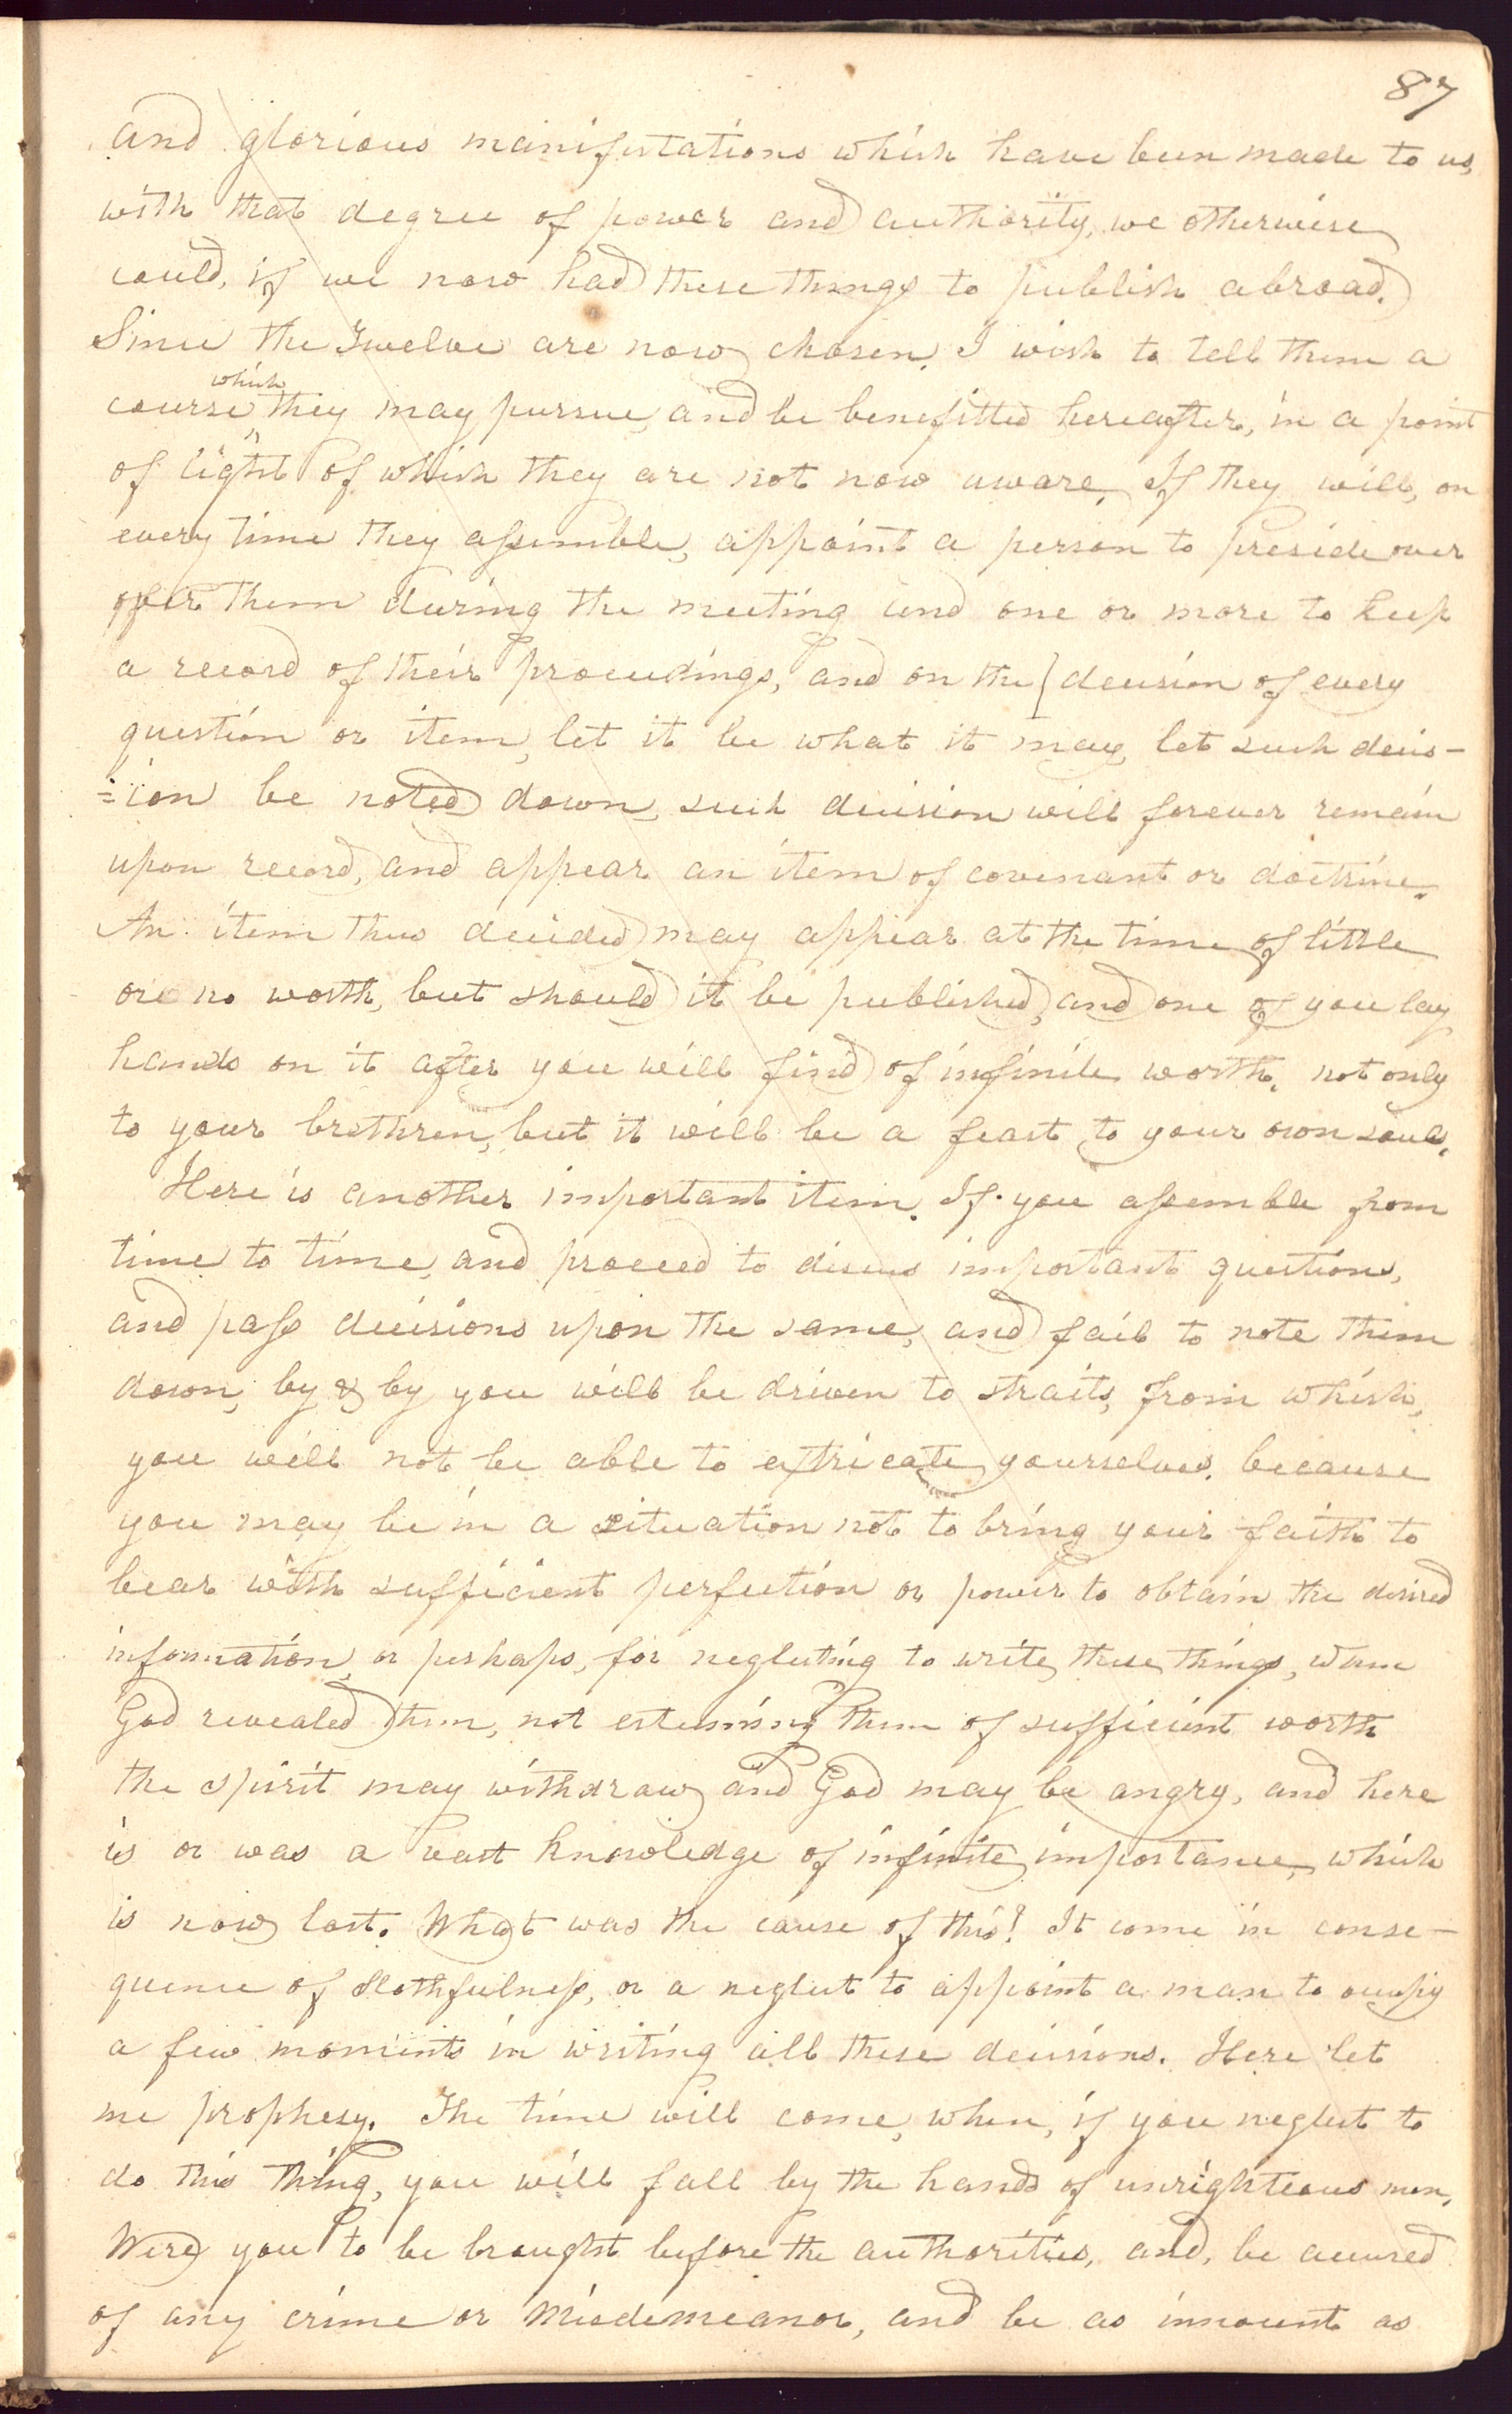 87
and glorious manifestations which have been made to us,
with that degree of power and authority, we otherwise
could, if we now had these things to publish abroad.
Since the Twelve are now chosen, I wish to tell them a
which
course they may pursue, and be benefitted hereafter, in a point
of light of which they are not now aware. If they will, on
every time they assemble, appoint a person to preside over
over them during the meeting and one or more to keep
a record of their proceedings, and on the decision of every
question or item, let it be what it may, let such decis-
=ion be noted down, such decision will forever remain
upon record, and appear an item of covenant or doctrine.
An item thus decided may appear at the time of little
or no worth, but should it be published, and one of you lay
hands on it after you will find of infinite worth, not only
to your brethren, but it will be a feast to your own souls.
Here is another important item. If you assemble from
time to time, and proceed to discuss important questions,
and pass decisions upon the same, and fail to note them
down, by & by you will be driven to straits, from which,
you will not be able to extricate yourselves, because
you may be in a situation not to bring your faith to
bear with sufficient perfection or power to obtain the desired
information, or perhaps, for neglecting to write these things, when
God revealed them, not esteeming them of sufficient worth
the spirit may withdraw and God may be angry, and here
is or was a vast knowledge of infinite importance, which
is now lost. What was the cause of this? It come in conse-
quence of slothfulness, or a neglect to appoint a man to occupy
a few moments in writing all these decisions. Here let
me prophesy. The time will come, when, if you neglect to
do this thing, you will fall by the hands of unrighteous men.
Were you to be brought before the authorities, and, be accused
of any crime or misdemeanor, and be as innocent as